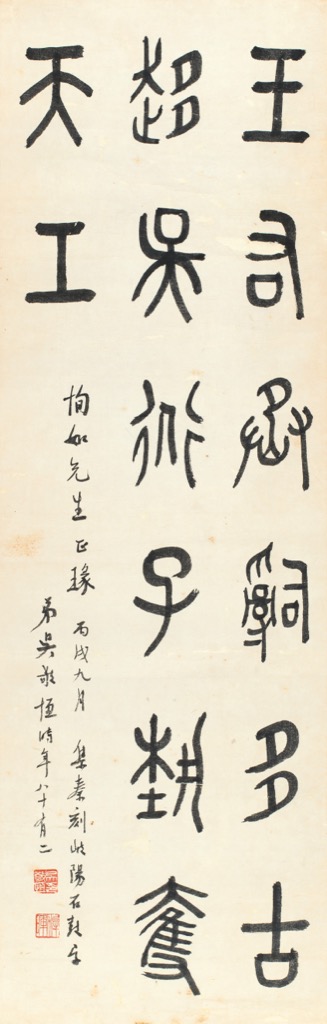 王右丞辭多古
趣吳道子埶奪
天工
恂如先生正瑑 丙戌九月 集秦刻岐陽石鼓字
弟吳敬恆時年八十有二